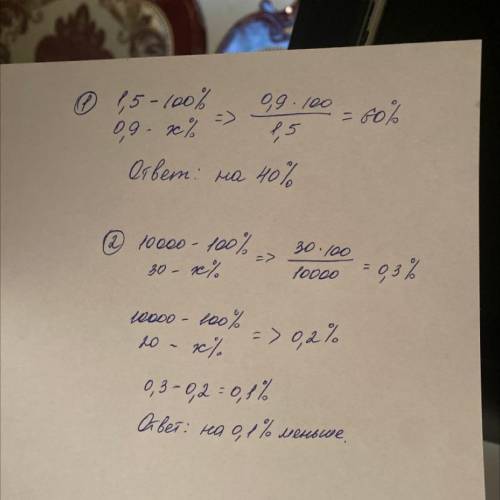 ① 1,5 - 100%
0,9 - x% => 0,9 · 100 / 1,5 = 60%
Ответ: на 40%
② 10000 - 100%
30 - x% => 30 · 100 / 10000 = 0,3%
10000 - 100%
20 - x% => 0,2%
0,3 - 0,2 = 0,1%
Ответ: на 0,1% меньше.